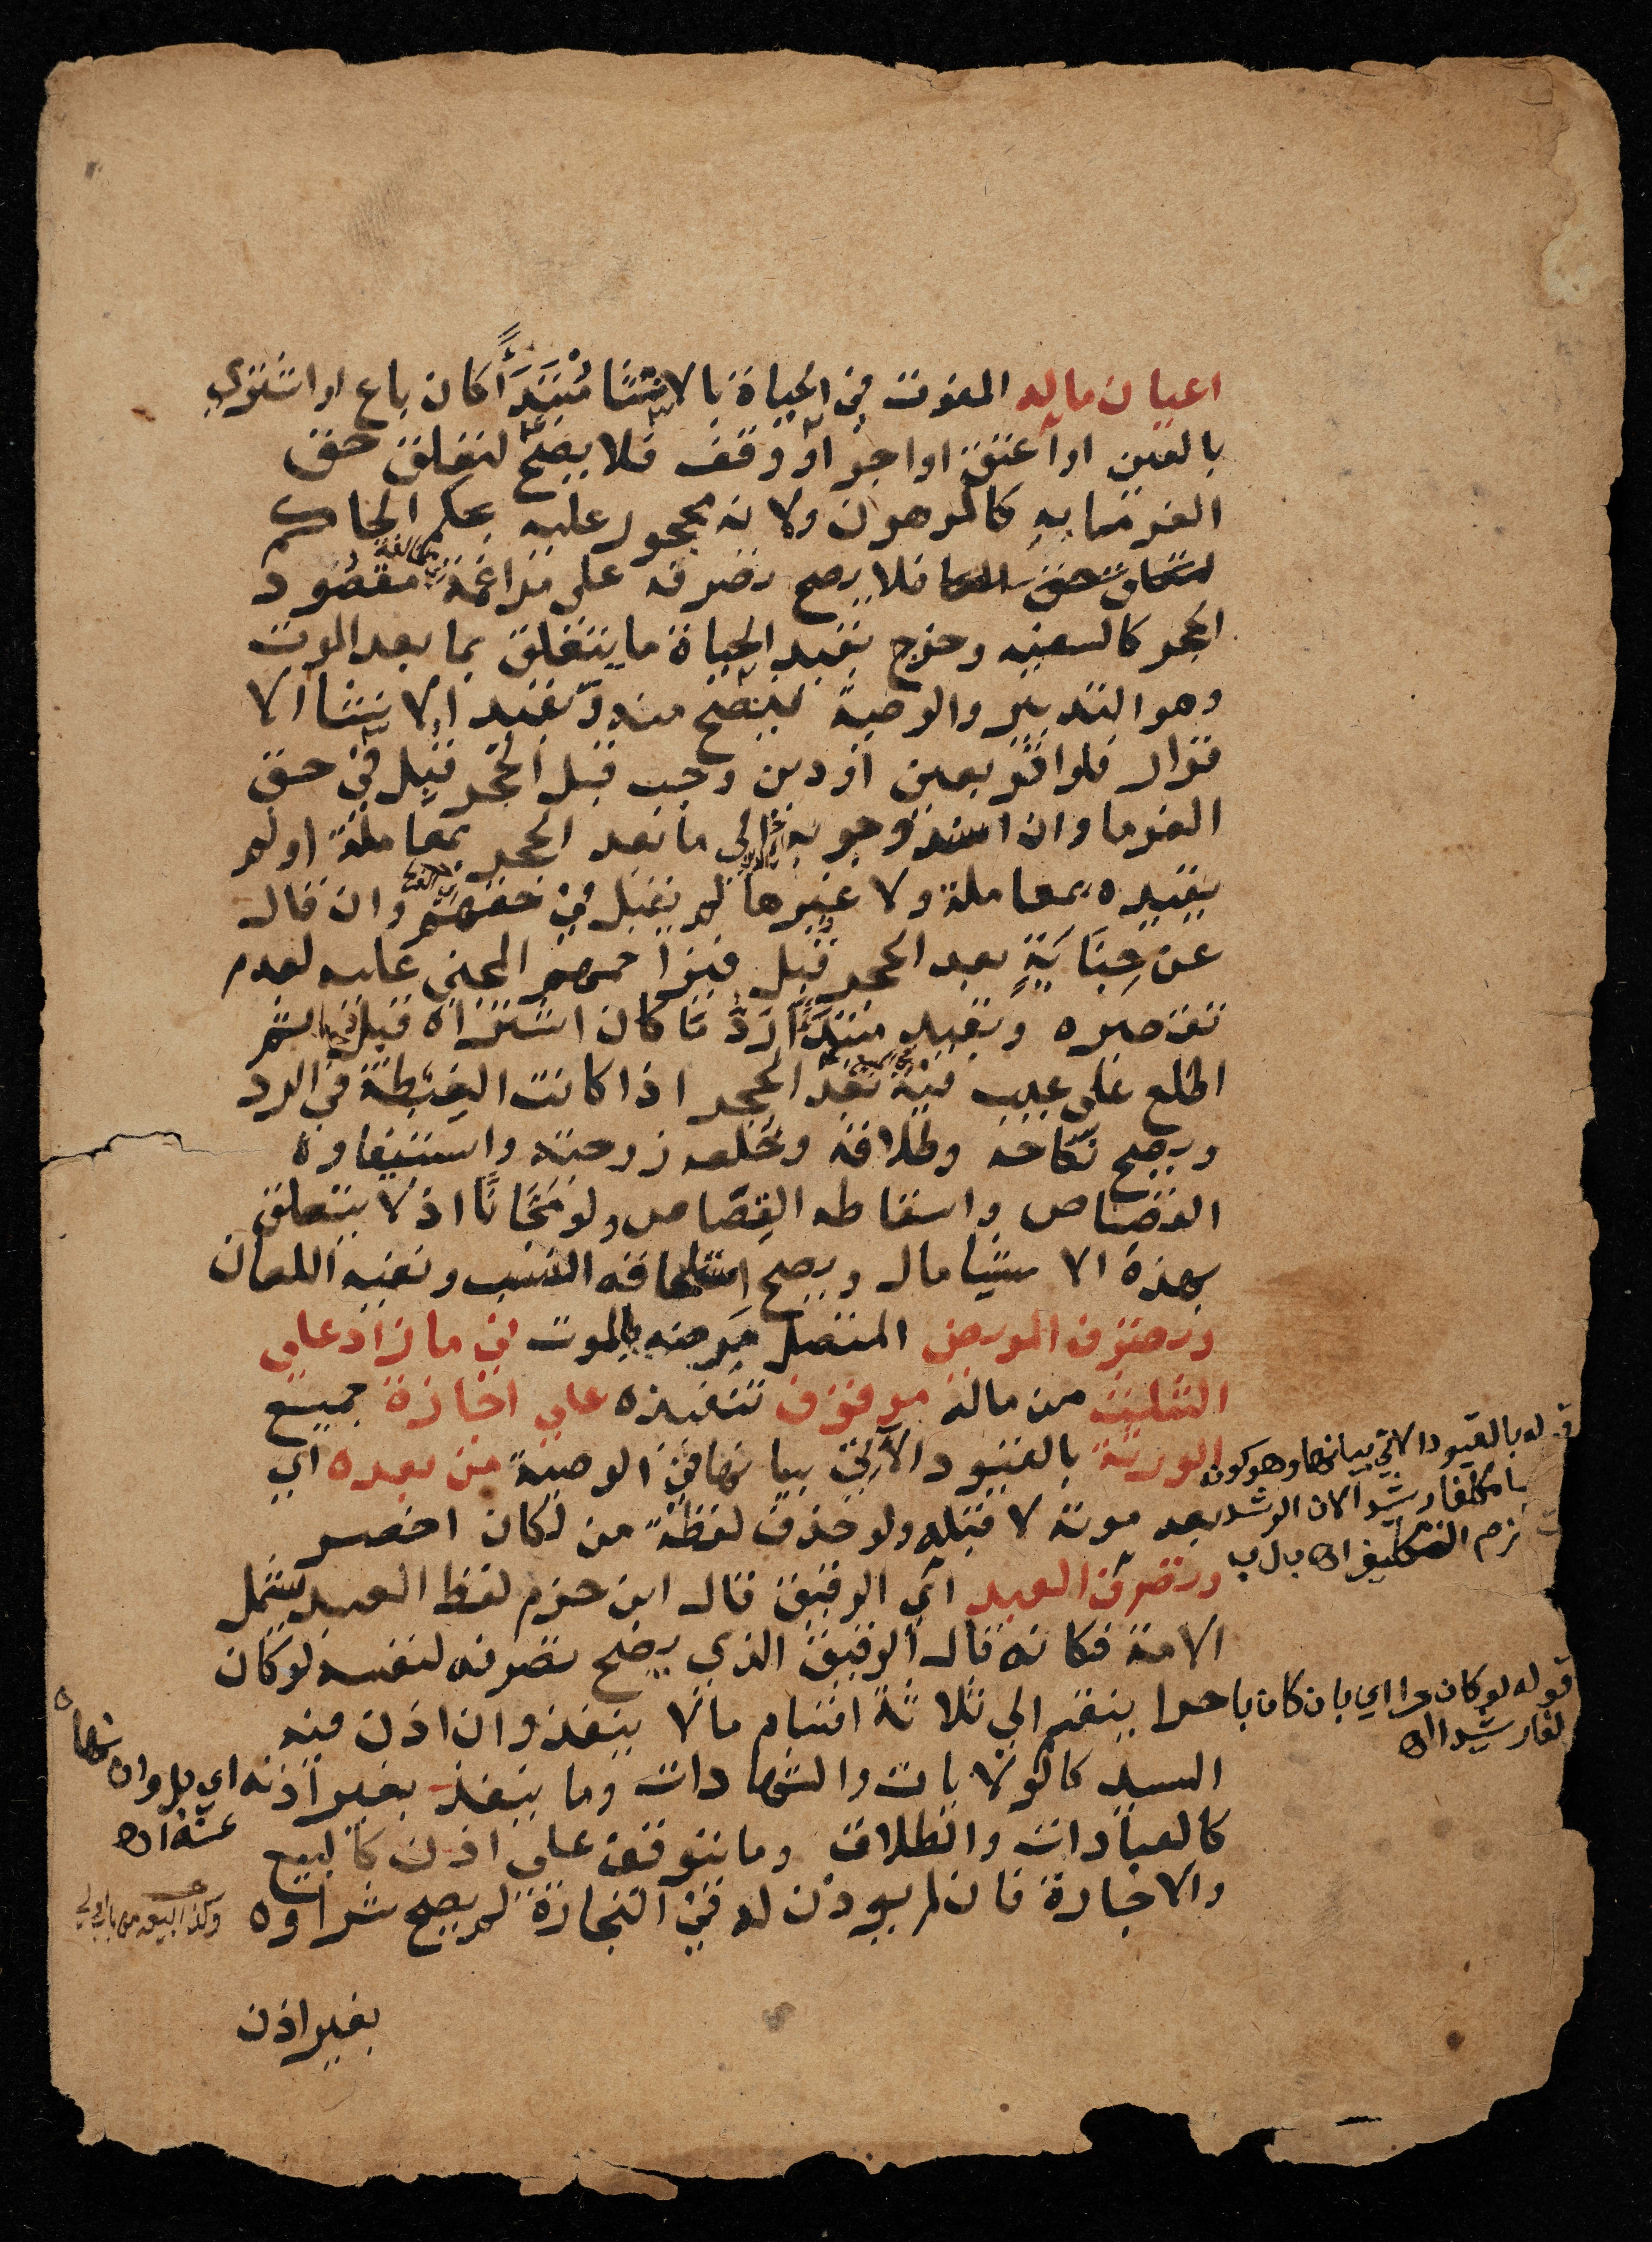 اعيان ماله المفوت في الحياة بالانشا مُبْتَدَأً كان باع او اشترى
بالعين او اعتق او اجر او وقف فلا يصح لتعلق حق
الغرما به كالمرهون ولانه محجور عليه بحكم الحاكم
فلا يصح تصرفه على مراغمة مقصود
الحجر كالسفيه وخرج بقيد الحياة ما يتعلق بما بعد الموت
وهو التدبير والوصية فيصح منه وبقيد الانشا الا
قرار فلو اقر بعين او دين وجب قبل الحجر قبل في حق
الغرما وان اسند وجوبه الى ما بعد الحجر بمعاملة او لم
يقيده بمعاملة ولا غيرها لم يقبل في حقهم وان قال
عن جِنَايَةٍ بعد الحجر قبل فيزاحمهم المجني عليه لعدم
تقصيره وبقيد مبتدأ رد ما كان اشتراه قبل ثم
اطلع على عيب فيه بعد الحجر اذا كانت الغبطة في الرد
ويصح نكاحه وطلاقه وخلعه زوجته واستيفاوه
القصاص واسقاطه القِصَاص ولو مَجَّانًا اذ لا يتعلق
بهذه الاشيا مال ويصح استلحاقه النسب ونفيه اللعان
وتصرف المريض المتصل مرضه بالموت في ما زاد على
الثلث من ماله موقوف تنفيذه على اجازة جميع
الورثة بالقيود الآتي بيانها في الوصية من بعده اي
بعد موته لا قبله ولو حذف لفظة من لكان اخصر
وتصرف العبد اي الرقيق قال ابن حزم لفظ العبد يشمل
الامة فكانه قال الرقيق الذي يصح تصرفه لنفسه لو كان
حرا ينقسم الى ثلاثة اقسام ما لا ينفذ وان اذن فيه
السيد كالولايات والشهادات وما ينفذ بغير اذنه
كالعبادات والطلاق وما يتوقف على اذن كالبيع
والاجارة فان لم يوذن له في التجارة لم يصح شراوه
بغير اذن
قوله بالقيود الاتي بيانها وهو كون
مكلفا رشيدا لان الرشد
التكليف اه
قوله لو كان حرا اي بان كان با
لغا رشيدا اه
اي بل وان نهاه
عنه اه